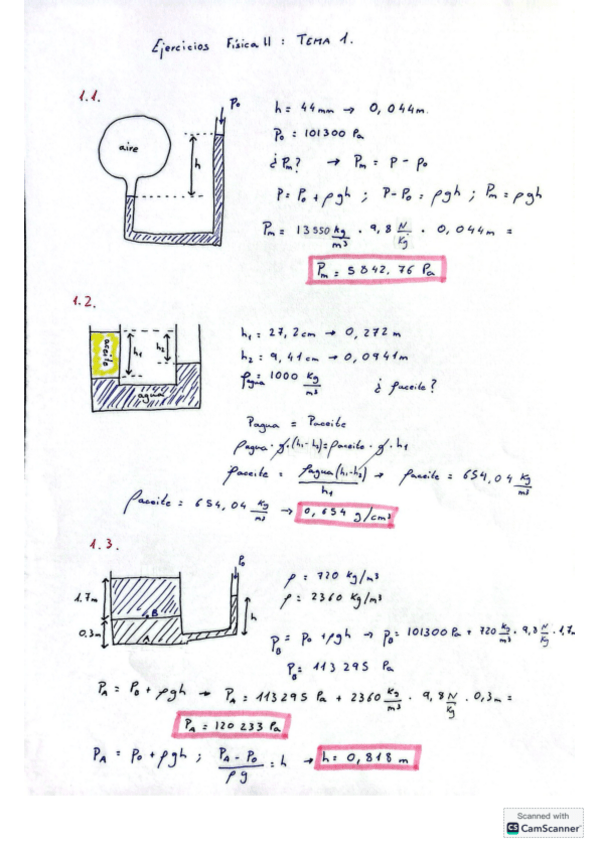 Ejercicios Física II : TEMA 1.
1.1.
P₀
aire
h
h = 44mm → 0,044m.
P₀ = 101300 Pa
¿Pm? → Pm = P - P₀
P = P₀ + ρgh ; P-P₀ = ρgh ; Pm = ρgh
Pm = 13550 kg/m³ · 9,8 N/Kg · 0,044m =
Pm = 5842,76 Pa
1.2.
aceite
h₁
h₂
agua
h₁ = 27,2cm → 0,272 m
h₂ = 9,41cm → 0,0941m
ρagua = 1000 Kg/m³ ¿ρaceite?
Pagua = Paceite
ρagua · g · (h₁-h₂) = ρaceite · g · h₁
ρaceite = ρagua (h₁-h₂)/h₁ → ρaceite = 654,04 Kg/m³
ρaceite = 654,04 Kg/m³ → 0,654 g/cm³
1.3.
P₀
1.7m
B
0.3m
A
h
ρ = 720 Kg/m³
ρ = 2360 Kg/m³
P_B = P₀ + ρgh → P_B = 101300 Pa + 720 Kg/m³ · 9,8 N/Kg · 1,7m
P_B = 113295 Pa
P_A = P_B + ρgh → P_A = 113295 Pa + 2360 Kg/m³ · 9,8 N/Kg · 0,3m =
P_A = 120233 Pa
P_A = P₀ + ρgh ; P_A - P₀/ρg = h → h = 0,818 m
Scanned with
CS CamScanner